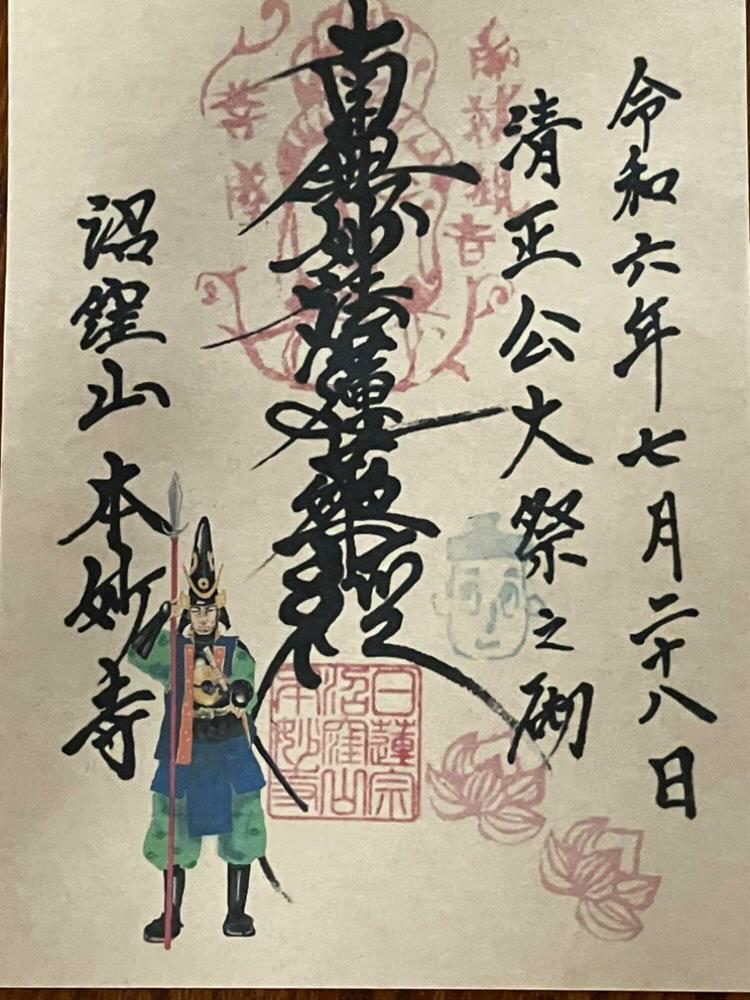 令和六年七月二十八日
清正公大祭之砌
南無妙法蓮華經
沼窪山 本妙寺
日蓮宗
沼窪山
本妙寺